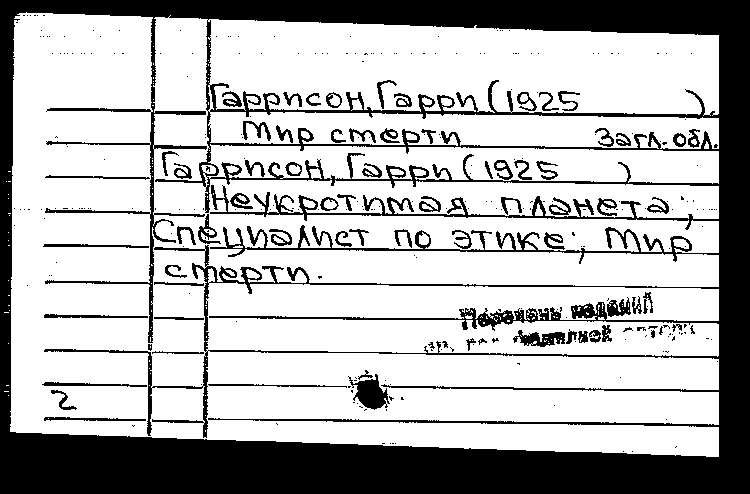 Гаррисон, Гарри (1925 ).
Мир смерти Загл. обл.
Гаррисон, Гарри (1925 )
Неукротимая планета;
Специалист по этике; Мир
смерти.
Перечень изданий
фамилией автора
2